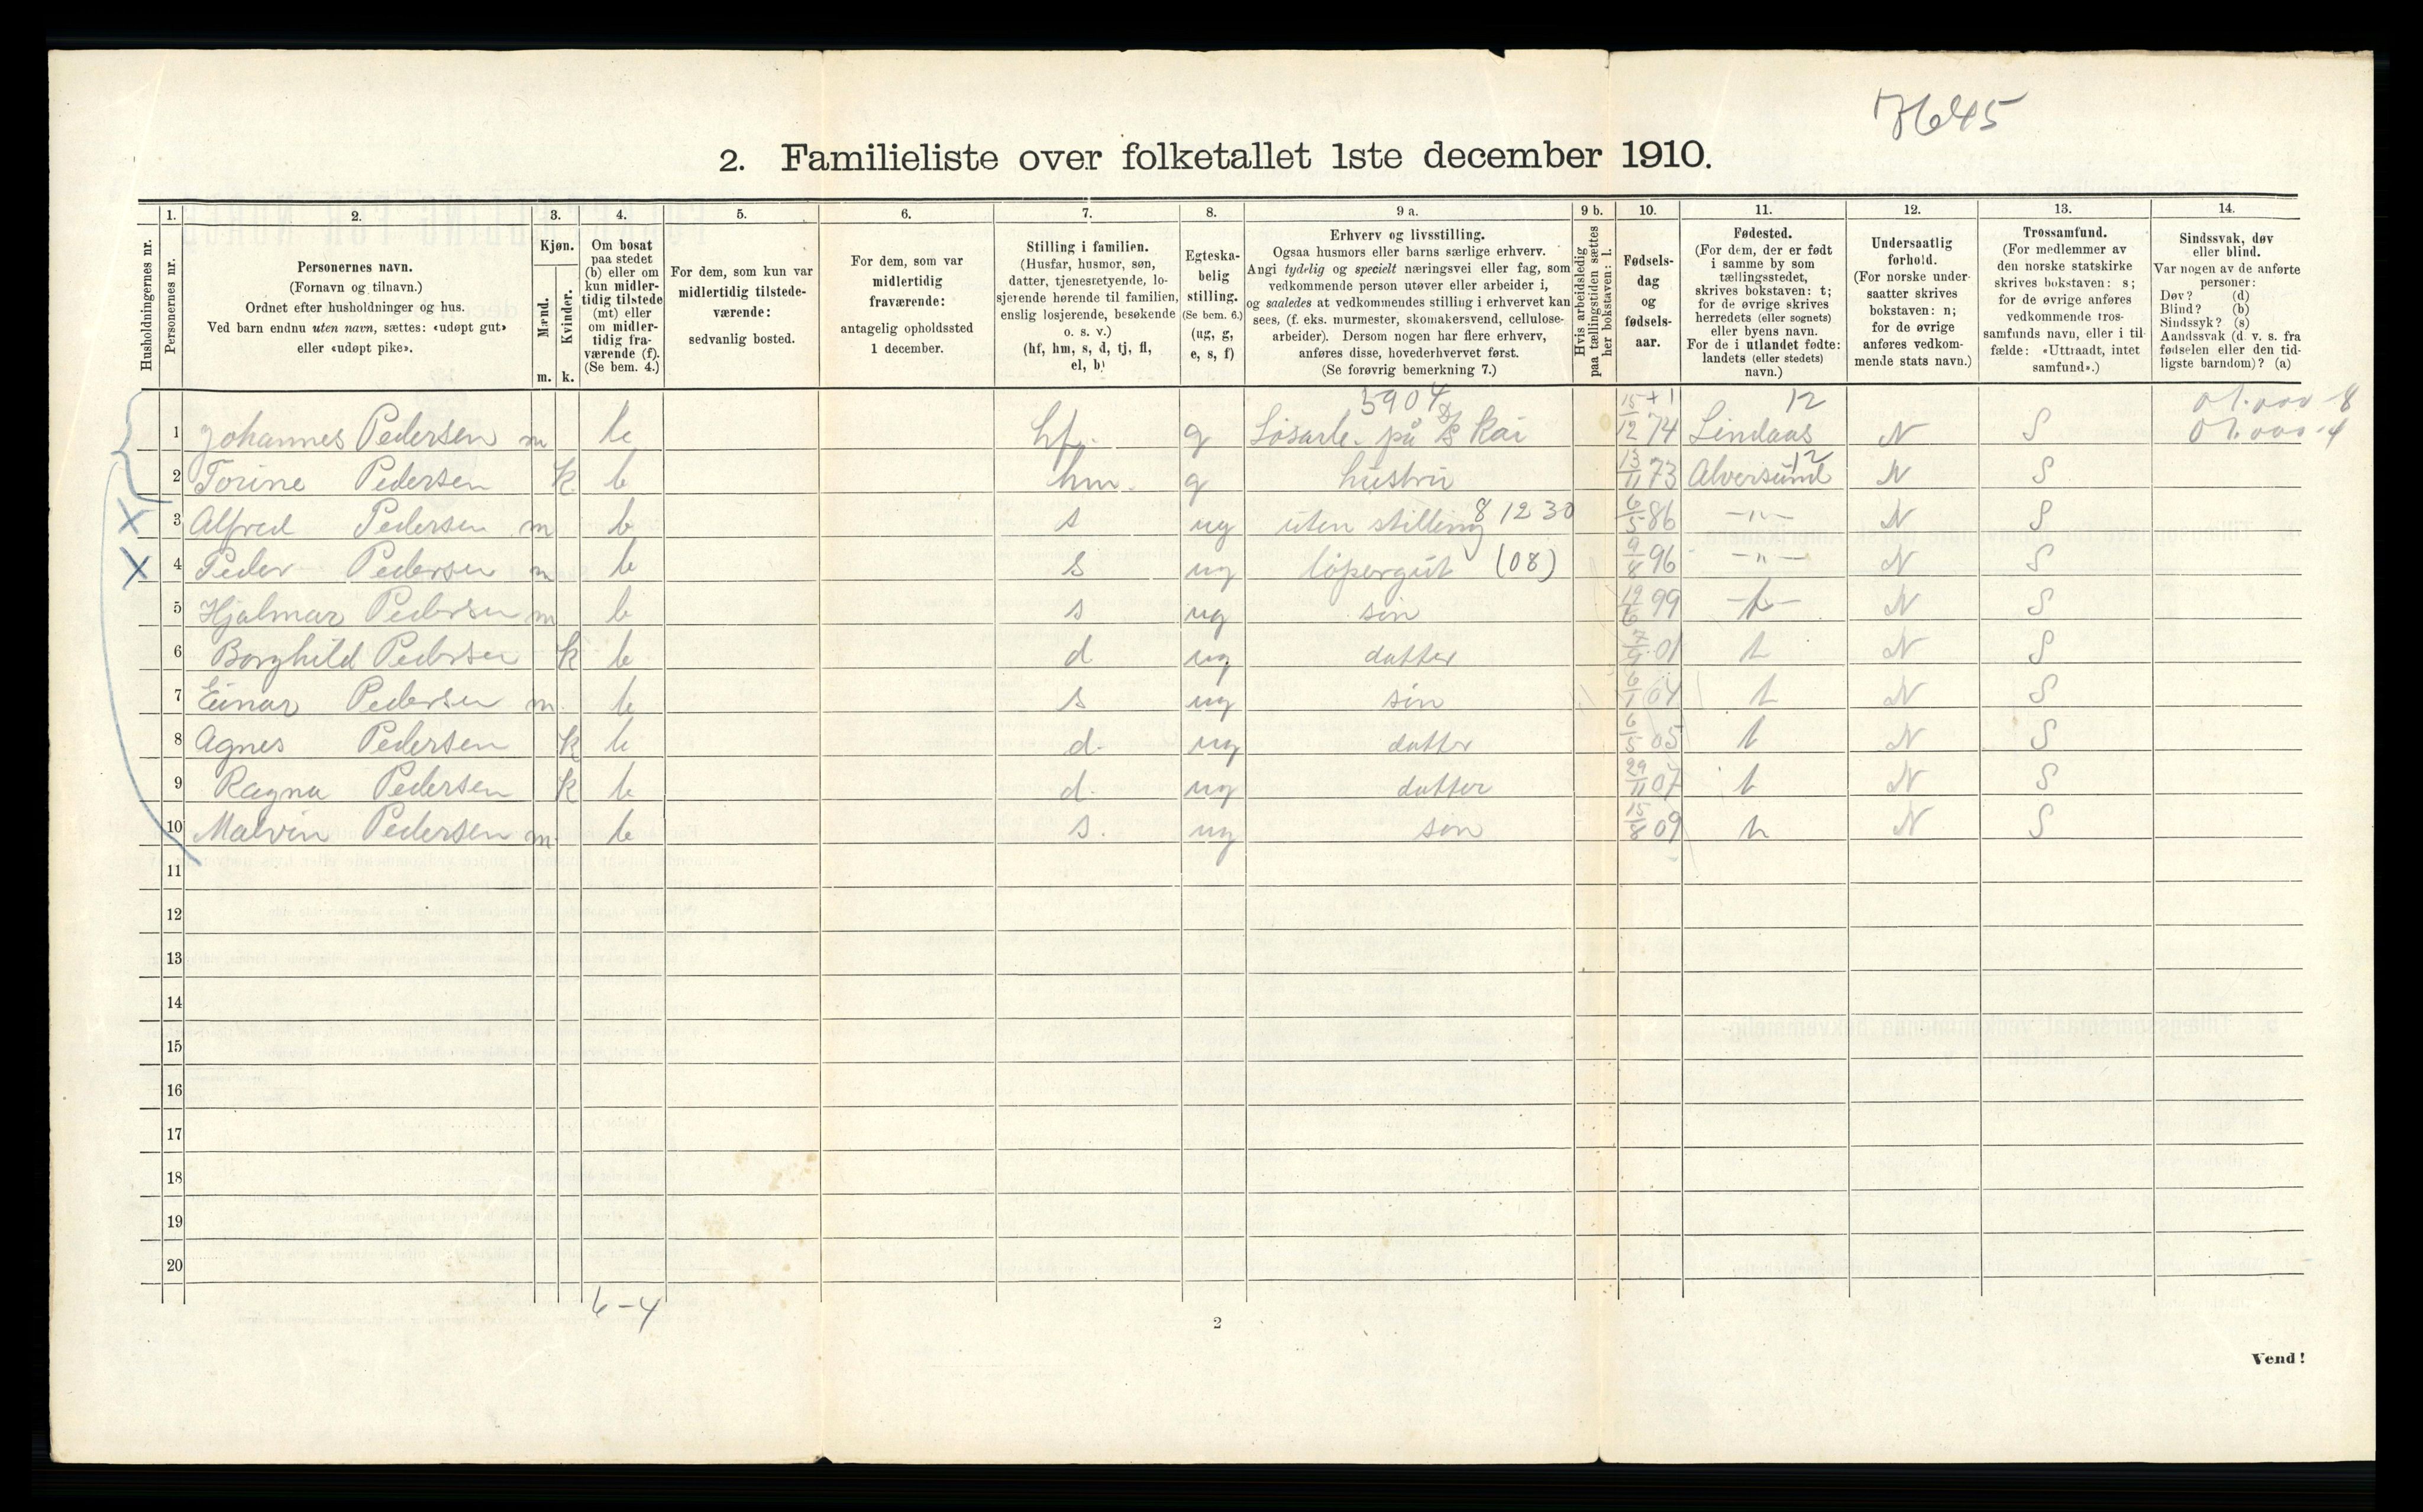 7645
2. Familieliste over folketallet 1ste december 1910.
Husholdningernes nr.
1. Personernes nr.
2. Personernes navn. (Fornavn og tilnavn.) Ordnet efter husholdninger og hus. Ved barn endnu uten navn, sættes: «udøpt gut» eller «udøpt pike».
3. Kjøn. Mænd. m. Kvinder. k.
4. Om bosat paa stedet (b) eller om kun midlertidig tilstede (mt) eller om midlertidig fraværende (f). (Se bem. 4.)
5. For dem, som kun var midlertidig tilstedeværende: sedvanlig bosted.
6. For dem, som var midlertidig fraværende: antagelig opholdssted 1 december.
7. Stilling i familien. (Husfar, husmor, søn, datter, tjenestetyende, losjerende hørende til familien, enslig losjerende, besøkende o. s. v.) (hf, hm, s, d, tj, fl, el, b)
8. Egteskabelig stilling. (Se bem. 6.) (ug, g, e, s, f)
9 a. Erhverv og livsstilling. Ogsaa husmors eller barns særlige erhverv. Angi tydelig og specielt næringsvei eller fag, som vedkommende person utøver eller arbeider i, og saaledes at vedkommendes stilling i erhvervet kan sees, (f. eks. murmester, skomakersvend, cellulosearbeider). Dersom nogen har flere erhverv, anføres disse, hovederhvervet først. (Se forøvrig bemerkning 7.)
9 b. Hvis arbeidsledig paa tællingstiden sættes her bokstaven: l.
10. Fødselsdag og fødselsaar.
11. Fødested. (For dem, der er født i samme by som tællingsstedet, skrives bokstaven: t; for de øvrige skrives herredets (eller sognets) eller byens navn. For de i utlandet fødte: landets (eller stedets) navn.)
12. Undersaatlig forhold. (For norske undersaatter skrives bokstaven: n; for de øvrige anføres vedkommende stats navn.)
13. Trossamfund. (For medlemmer av den norske statskirke skrives bokstaven: s; for de øvrige anføres vedkommende trossamfunds navn, eller i tilfælde: «Uttraadt, intet samfund».)
14. Sindssvak, døv eller blind. Var nogen av de anførte personer: Døv? (d) Blind? (b) Sindssyk? (s) Aandssvak (d. v. s. fra fødselen eller den tidligste barndom)? (a)
5904 15 + 1 12 01.000-8
1 Johannes Pedersen m b hf. g Løsarb. på D/S kai 15/12 74 Lindaas N S 01.000-4
2 Torine Pedersen k b hm. g hustru 13/11 73 Alversund 12 N S
3 Alfred Pedersen m b s ug uten stilling 8 12 30 6/5 86 -"- N S
4 Peder Pedersen m b s ug løpergut (08) 9/8 96 -"- N S
5 Hjalmar Pedersen m b s ug søn 19/6 99 t N S
6 Borghild Pedersen k b d ug datter 7/9 01 t N S
7 Einar Pedersen m b s ug søn 6/1 04 t N S
8 Agnes Pedersen k b d. ug datter 6/5 05 t N S
9 Ragna Pedersen k b d. ug datter 29/11 07 t N S
10 Malvin Pedersen m. b s. ug søn 15/8 09 t N S
11
12
13
14
15
16
17
18
19
20
6-4
2
Vend!